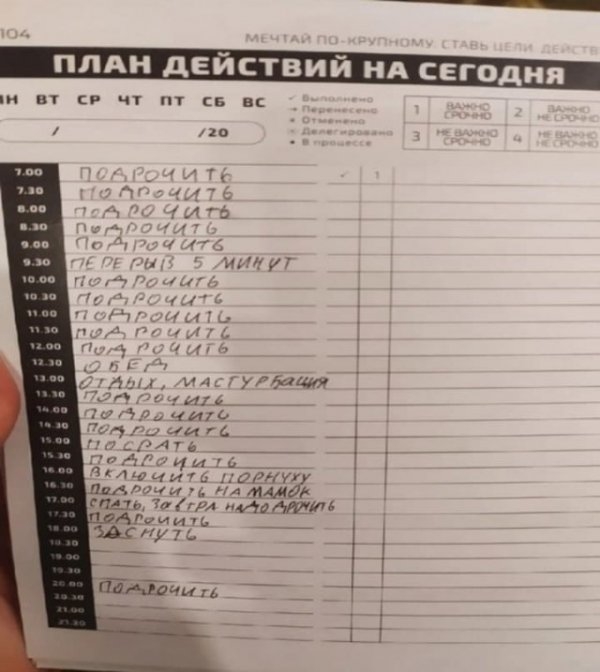 104
МЕЧТАЙ ПО-КРУПНОМУ. СТАВЬ ЦЕЛИ. ДЕЙСТВ
ПЛАН ДЕЙСТВИЙ НА СЕГОДНЯ
ПН ВТ СР ЧТ ПТ СБ ВС
/ /20
✓ Выполнено
→ Перенесено
Отменено
Делегировано
• В процессе
1 ВАЖНО СРОЧНО 2 ВАЖНО НЕ СРОЧНО
3 НЕ ВАЖНО СРОЧНО 4 НЕ ВАЖНО НЕ СРОЧНО
7.00 ПОДРОЧИТЬ ✓ 1
7.30 ПОДРОЧИТЬ
8.00 ПОДРОЧИТЬ
8.30 ПОДРОЧИТЬ
9.00 ПОДРОЧИТЬ
9.30 ПЕРЕРЫВ 5 МИНУТ
10.00 ПОДРОЧИТЬ
10.30 ПОДРОЧИТЬ
11.00 ПОДРОЧИТЬ
11.30 ПОДРОЧИТЬ
12.00 ПОДРОЧИТЬ
12.30 ОБЕД
13.00 ОТДЫХ, МАСТУРБАЦИЯ
13.30 ПОДРОЧИТЬ
14.00 ПОДРОЧИТЬ
14.30 ПОДРОЧИТЬ
15.00 ПОСРАТЬ
15.30 ПОДРОЧИТЬ
16.00 ВКЛЮЧИТЬ ПОРНУХУ
16.30 ПОДРОЧИТЬ НА МАМОК
17.00 СПАТЬ, ЗАВТРА НАДО ДРОЧИТЬ
17.30 ПОДРОЧИТЬ
18.00 ЗАСНУТЬ
18.30
19.00
19.30
20.00 ПОДРОЧИТЬ
20.30
21.00
21.30